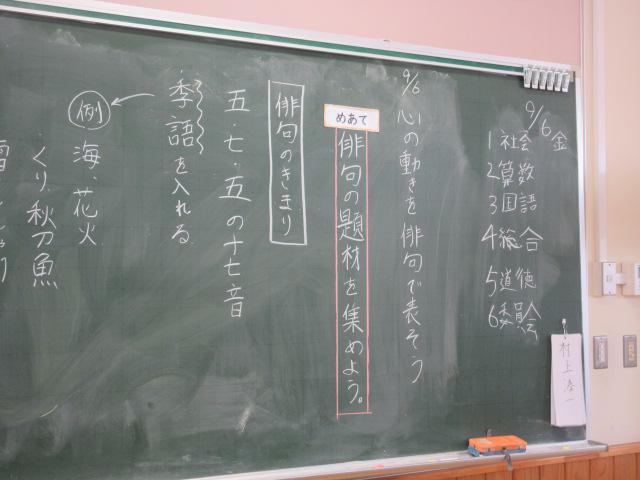 9/6金
1 社会
2 算数
3 国語
4 総合
5 道徳
6 委員会
9/6 心の動きを俳句で表そう
めあて
俳句の題材を集めよう。
俳句のきまり
五・七・五の十七音
季語を入れる
例
海、花火
くり、秋刀魚